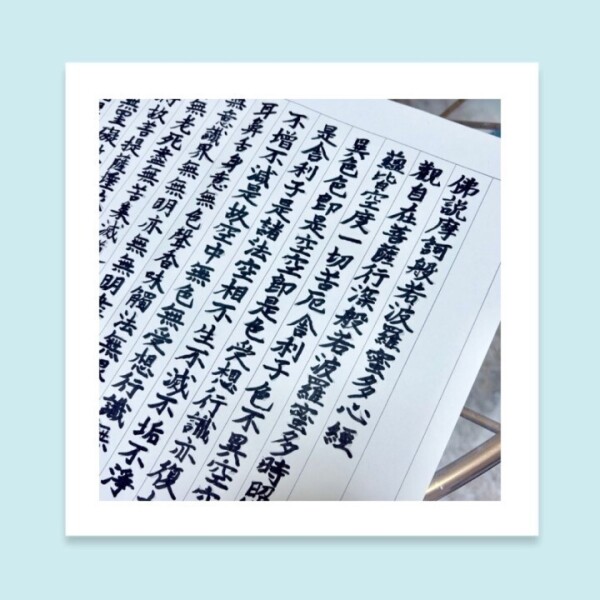 佛説摩訶般若波羅蜜多心經
觀自在菩薩行深般若波羅蜜多時照
蘊皆空度一切苦厄舍利子色不異空空
異色色即是空空即是色受想行識亦復
是舍利子是諸法空相不生不滅不垢不淨
不增不減是故空中無色無受想行識無
耳鼻舌身意無色聲香味觸法無眼
無意識界無無明亦無無明
無老死盡無苦集滅道
故菩提薩埵
無罣礙故